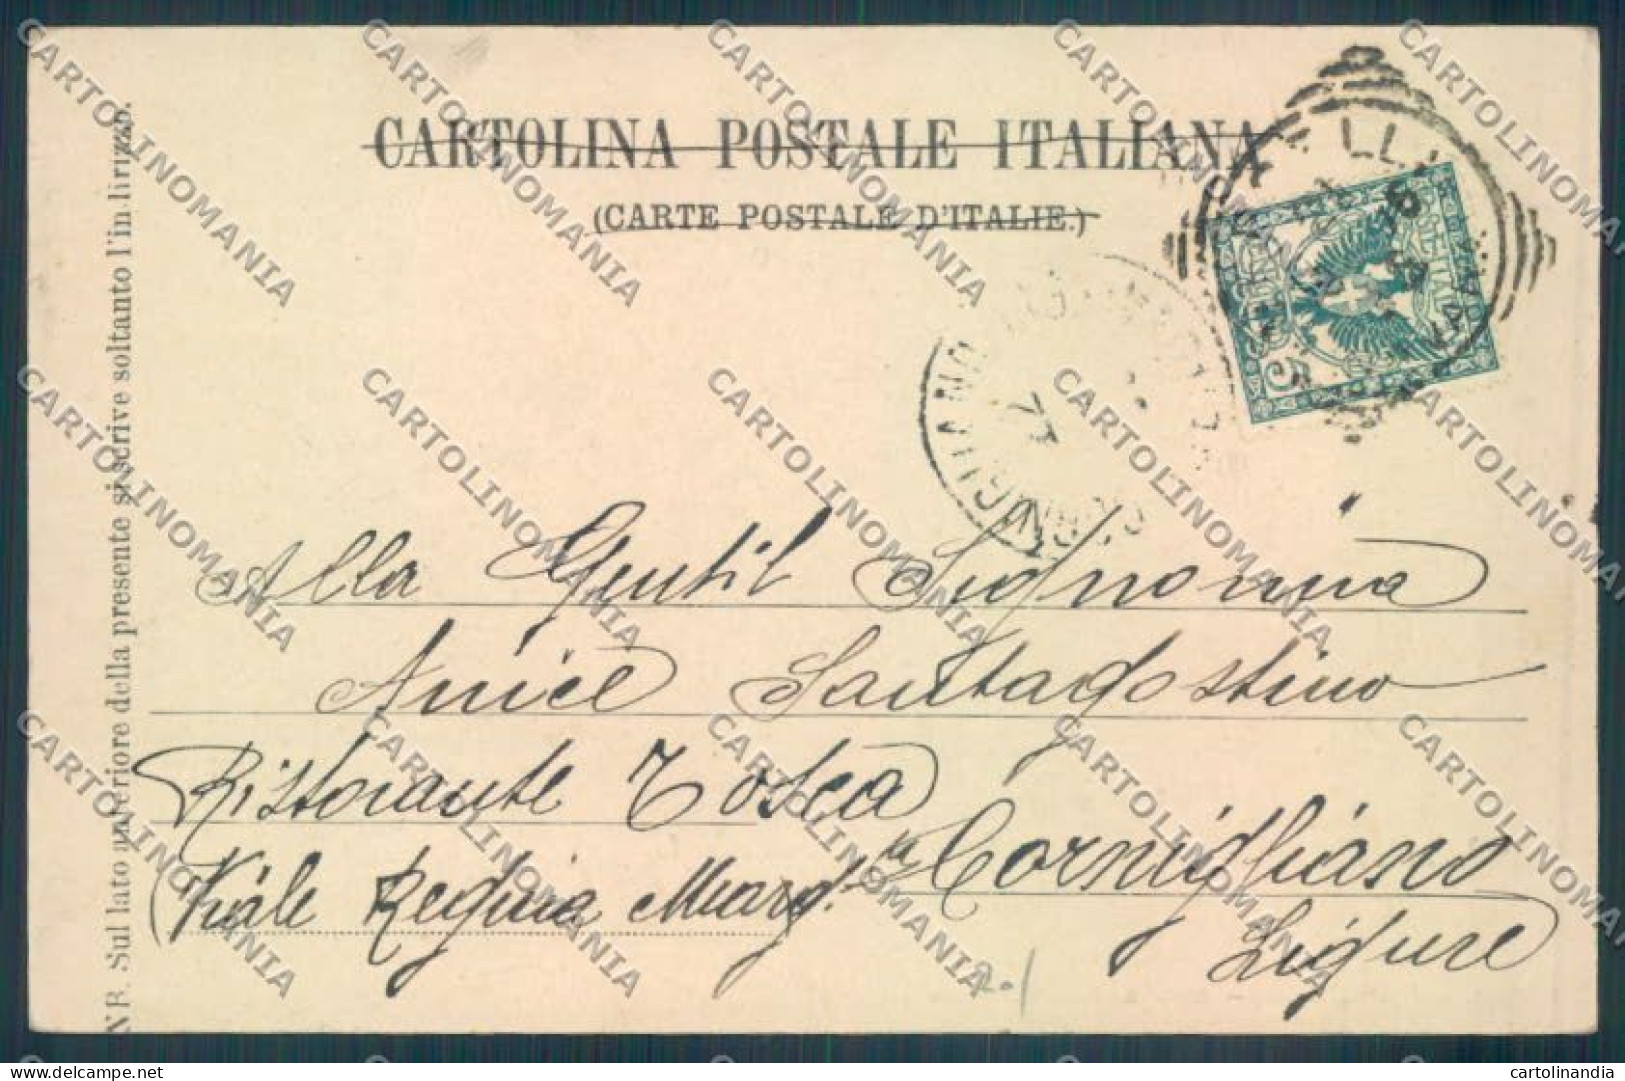 CARTOLINA POSTALE ITALIANA
(CARTE POSTALE D'ITALIE.)
NB. Sul lato anteriore della presente si scrive soltanto l'indirizzo.
CORNIGLIANO
Alla Gentil Signorina
Anice Santagostino
Ristorante Tosca
Viale Regina Marg.ta
Cornigliano
Ligure
CARTOLINOMANIA
www.delcampe.net
cartolinandia